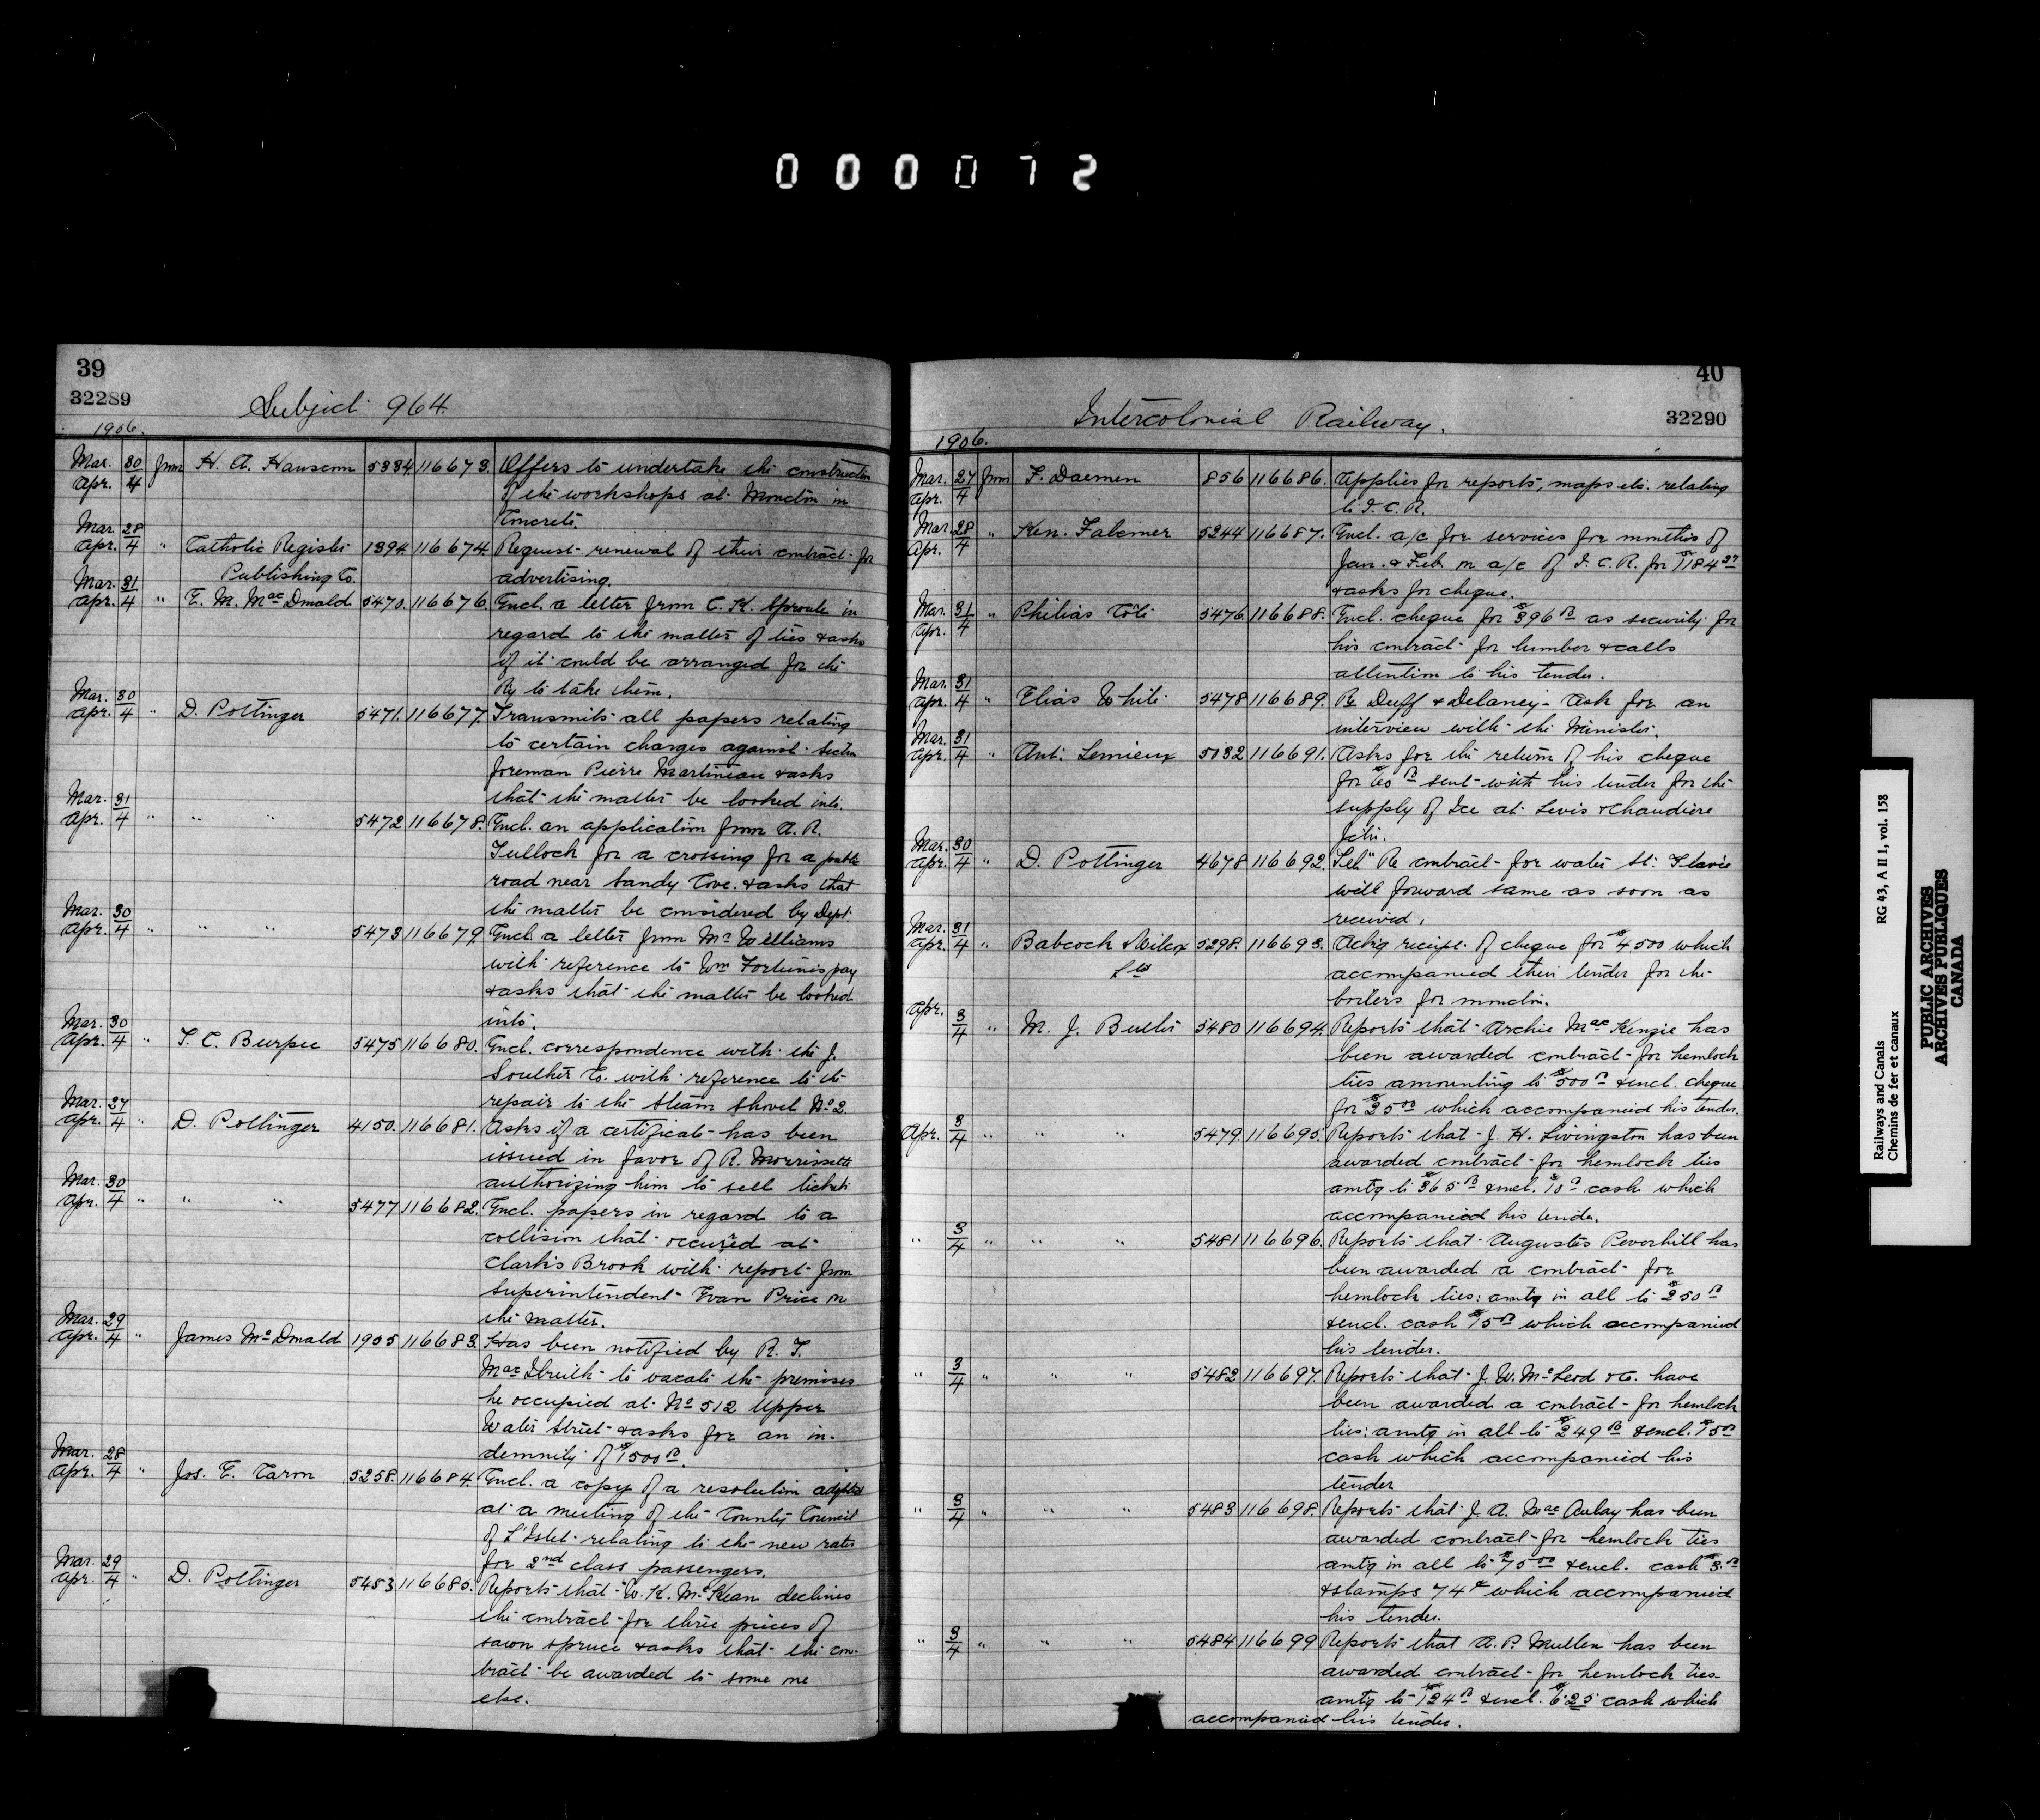 000072
39
32289
Subject 964
1906.
Mar. 30 from H. A. Hanson 5334 116673. Offers to undertake the construction
Apr. 4 of the workshops at Moncton in
Concrete.
Mar. 28
Apr. 4 " Catholic Register 1394 116674 Request renewal of their contract for
Publishing Co. advertising.
Mar. 31
Apr. 4 " E. M. MacDonald 5470. 116676. Encl. a letter from C. K. Sproule in
regard to the matter of ties & asks
if it could be arranged for the
Ry to take them.
Mar. 30
Apr. 4 " D. Pottinger 5471. 116677. Transmits all papers relating
to certain charges against section
foreman Pierre Martineau & asks
that the matter be looked into.
Mar. 31
Apr. 4 " " " 5472 116678. Encl. an application from A. R.
Tulloch for a crossing for a public
road near Sandy Cove. & asks that
the matter be considered by Dept.
Mar. 30
Apr. 4 " " " 5473 116679. Encl. a letter from Mr Williams
with reference to Wm Fortune's pay
& asks that the matter be looked
into.
Mar. 30
Apr. 4 " T. C. Burpee 5475 116680. Encl. correspondence with the J.
Souther Co. with reference to the
repair to the Steam Shovel No 2.
Mar. 27
Apr. 4 " D. Pottinger 4150. 116681. Asks if a certificate has been
issued in favor of R. Morrissette
authorizing him to sell tickets
Mar. 30
Apr. 4 " " " 5477 116682. Encl. papers in regard to a
collision that occured at
Clark's Brook with report from
Superintendent Evan Price on
the matter.
Mar. 29
Apr. 4 " James McDonald 1905 116683. Has been notified by R. T.
MacIlreith to vacate the premises
he occupied at No 512 Upper
Water Street & asks for an in-
demnity of $1500 00.
Mar. 28
Apr. 4 " Jos. E. Caron 5258. 116684. Encl. a copy of a resolution adopted
at a meeting of the County Council
of L'Islet relating to the new rates
for 2nd class passengers.
Mar. 29
Apr. 4 " D. Pottinger 5453 116685. Reports that W. K. McKean declines
the contract for three prices of
sawn spruce & asks that the con-
tract be awarded to some one
else.
40
32290
Intercolonial Railway.
1906.
Mar. 27 from F. Daemen 856 116686. Applies for reports, maps etc. relating
Apr. 4 to I. C. R.
Mar. 28 " Ken. Falconer 5244 116687. Encl. a/c for services for months of
Apr. 4 Jan. & Feb. on a/c of I. C. R. for $1184 37
& asks for cheque.
Mar. 31 " Philias Coté 5476. 116688. Encl. cheque for $396 00 as security for
Apr. 4 his contract for lumber & calls
attention to his tender.
Mar. 31
Apr. 4 " Elias White 5478 116689. Re Duff & Delaney - Ask for an
interview with the Minister.
Mar. 31
Apr. 4 " Ant. Lemieux 5032 116691. Asks for the return of his cheque
for $60 00 sent with his tender for the
supply of Ice at Levis & Chaudiere
Jctn.
Mar. 30
Apr. 4 " D. Pottinger 4678 116692. Tel" Re contract for water St. Flavie
will forward same as soon as
received.
Mar. 31
Apr. 4 " Babcock & Wilcox 5298. 116693. Ackg receipt of cheque for $4500 which
Ltd accompanied their tender for the
boilers for Moncton.
Apr. 3
4 " M. J. Butler 5480 116694. Reports that Archie MacKenzie has
been awarded contract for hemlock
ties amounting to $500 00 & encl. cheque
for $25 00 which accompanied his tender.
Apr. 3/4 " " " 5479. 116695. Reports that J. H. Livingston has been
awarded contract for hemlock ties
amtg to $365 00 & encl. $15 00 cash which
accompanied his tender.
" 3/4 " " " 5481 116696. Reports that Augustus Peverhill has
been awarded a contract for
hemlock ties: amtg in all to $250 00
& encl. cash $15 00 which accompanied
his tender.
" 3/4 " " " 5482 116697. Reports that J. W. McLeod & Co. have
been awarded a contract for hemlock
ties: amtg in all to $249 00 & encl. $15 00
cash which accompanied his
tender
" 3/4 " " " 5483 116698. Reports that J. A. MacAulay has been
awarded contract for hemlock ties
amtg in all to $75 00 & encl. cash $3. 00
& stamps 74 ¢ which accompanied
his tender.
" 3/4 " " " 5484 116699 Reports that A. P. Mullen has been
awarded contract for hemlock ties
amtg to $124 00 & encl. $6.25 cash which
accompanied his tender.
Railways and Canals RG 43, A II 1, vol. 158
Chemins de fer et canaux
PUBLIC ARCHIVES
ARCHIVES PUBLIQUES
CANADA